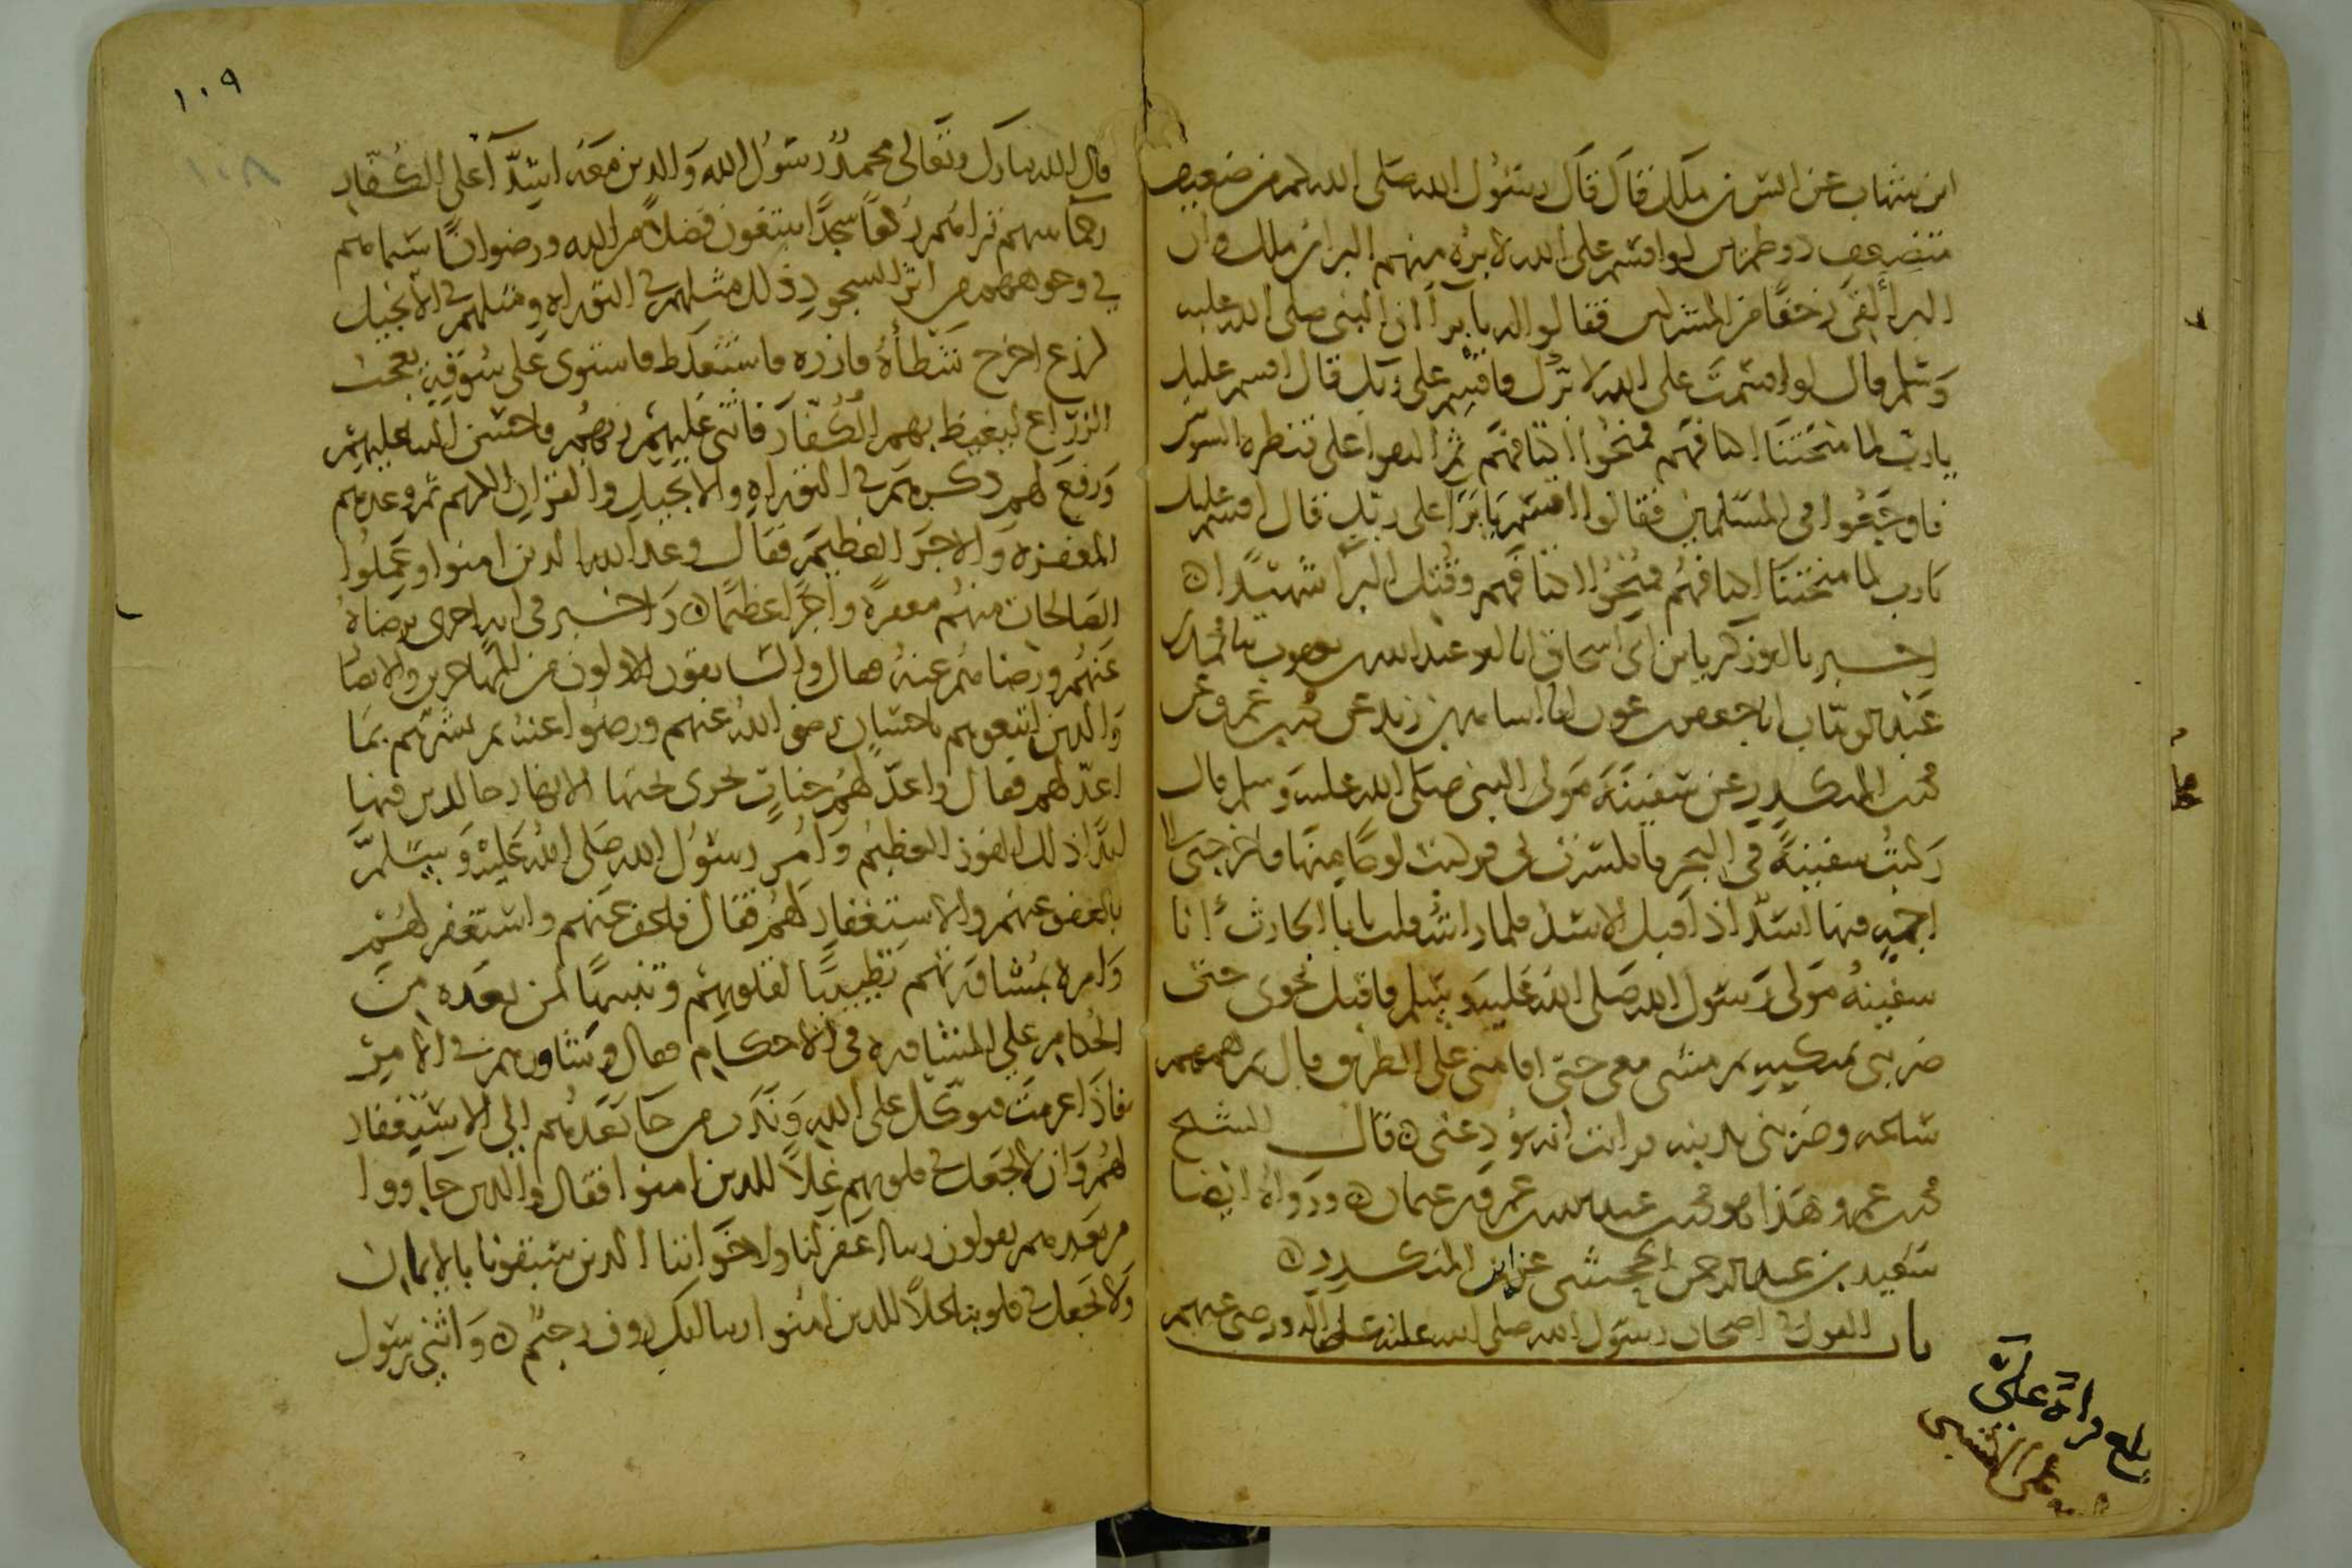 ابن شهاب عن انس بن ملك قال قال رسول الله صلى الله كم من ضعيف
متضعف ذو طمرين لو اقسم على الله لابره منهم البرا بن ملك وان
البرا لقى زحفا من المشركين فقالوا له يا برا ان النبى صلى الله عليه
وسلم قال لو اقسمت على الله لابرك فاقسم على ربك قال اقسم عليك
يا رب لما منحتنا اكتافهم فمنحوا اكتافهم ثم التقوا على قنطرة السوس
فاوجعوا فى المسلمين فقالوا اقسم يا برا على ربك قال اقسم عليك
يا رب لما منحتنا اكتافهم فمنحوا اكتافهم وقتل البرا شهيدا ه
اخبرنا ابو زكريا بن ابى اسحاق انا ابو عبد الله بن يعقوب ثنا محمد بن
عبد الوهاب انا جعفر بن عون انا اسامة بن زيد عن محمد بن عمرو عن
محمد بن المنكدر عن سفينة مولى النبى صلى الله عليه وسلم قال
ركبت سفينة فى البحر فانكسرت بى فركبت لوحا منها فاخرجنى الى
اجمة فيها اسد اذ اقبل الاسد فلما راىته قلت يا با الحارث انا
سفينة مولى رسول الله صلى الله عليه وسلم فاقبل نحوى حتى
ضربنى بمنكبه ثم مشى معى حتى اقامنى على الطريق قال ثم همهم
ساعة وضربنى بذنبه فرايت انه يودعنى ه قال الشيخ
محمد بن عمرو هذا هو محمد بن عبد الله بن عمرو بن عثمان ه ورواه ايضا
سعيد بن عبد الرحمن الجحشى عن ابن المنكدر ه
باب القول فى اصحاب رسول الله صلى الله عليه وعلى اله ورضى عنهم
بلغ قراة على
١٠٩
١٠٨
قال الله تبارك وتعالى محمد رسول الله والذين معه اشدآ على الكفار
رحما بينهم تراهم ركعا سجدا يبتغون فضلا من الله ورضوانا سيماهم
فى وجوههم من اثر السجود ذلك مثلهم فى التوراه ومثلهم فى الانجيل
كزرع اخرج شطأه فازره فاستغلظ فاستوى على سوقه يعجب
الزراع ليغيظ بهم الكفار فاثنى عليهم ربهم واحسن الثنا عليهم
ورفع لهم ذكرهم فى التوراه والانجيل والقران الكريم ثم وعدهم
المغفرة والاجر العظيم فقال وعد الله الذين امنوا وعملوا
الصالحات منهم مغفرة واجرا عظيما ه واخبر فى اية اخرى برضاه
عنهم ورضاهم عنه فقال والسابقون الاولون من المهاجرين والانصا
والذين اتبعوهم باحسان رضى الله عنهم ورضوا عنه ثم بشرهم بما
اعد لهم فقال واعد لهم جنات تجرى تحتها الانهار خالدين فيها
ابدا ذلك الفوز العظيم وامر رسول الله صلى الله عليه وسلم
بالعفو عنهم والاستغفار لهم فقال فاعف عنهم واستغفر لهم
وامره بمشاورتهم تطييبا لقلوبهم وتنبيها لمن بعده من
الحكام على المشاورة فى الاحكام فقال وشاورهم فى الامر
فاذا عزمت فتوكل على الله وندب من جا بعدهم الى الاستغفار
لهم وان لا يجعل فى قلوبهم غلا للذين امنوا فقال والذين جاووا
من بعدهم يقولون ربنا اغفر لنا ولاخواننا الذين سبقونا بالايمان
ولا تجعل فى قلوبنا غلا للذين امنوا ربنا انك روف رحيم ه واثنى رسول